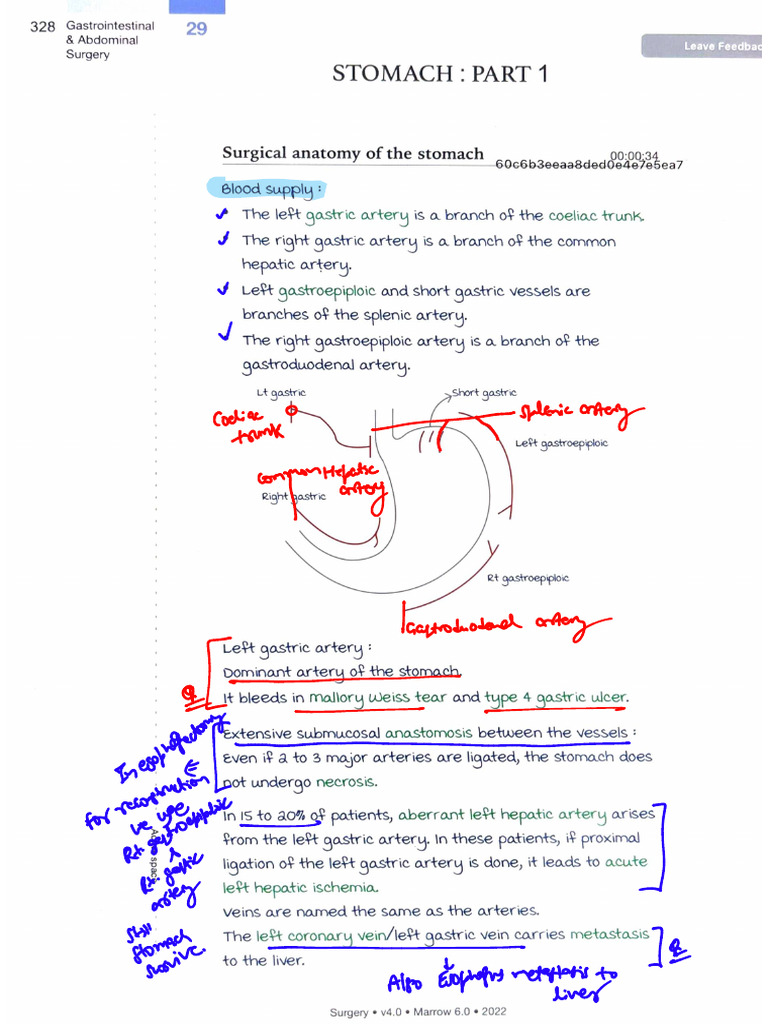 328 Gastrointestinal & Abdominal Surgery
29
Leave Feedbac
STOMACH : PART 1
Surgical anatomy of the stomach
00:00:34
60c6b3eeaa8ded0e4e7e5ea7
Blood supply :
The left gastric artery is a branch of the coeliac trunk.
The right gastric artery is a branch of the common
hepatic artery.
Left gastroepiploic and short gastric vessels are
branches of the splenic artery.
The right gastroepiploic artery is a branch of the
gastroduodenal artery.
Lt gastric
Short gastric
Coeliac
trunk
Splenic artery
Left gastroepiploic
Common Hepatic
artery
Right gastric
Rt gastroepiploic
Gastroduodenal artery
Left gastric artery :
Dominant artery of the stomach.
It bleeds in mallory weiss tear and type 4 gastric ulcer.
Q
Extensive submucosal anastomosis between the vessels :
Even if 2 to 3 major arteries are ligated, the stomach does
not undergo necrosis.
In esophagectomy
for reconstruction
we use
Rt gastroepiploic
Rt gastric
artery
still
stomach
survive.
In 15 to 20% of patients, aberrant left hepatic artery arises
from the left gastric artery. In these patients, if proximal
ligation of the left gastric artery is done, it leads to acute
left hepatic ischemia.
Veins are named the same as the arteries.
The left coronary vein/left gastric vein carries metastasis
to the liver.
Q
Also Esophagus metastasis to
liver
Surgery • v4.0 • Marrow 6.0 • 2022